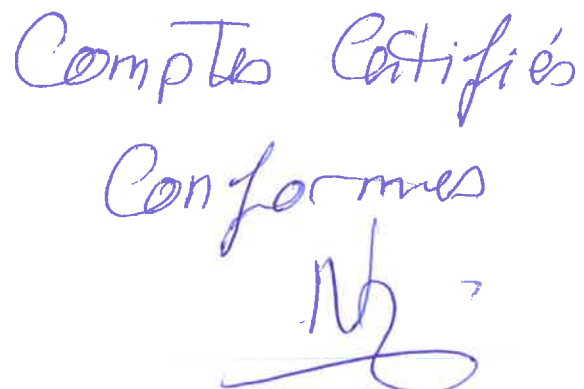 Comptes Certifiés
Conformes